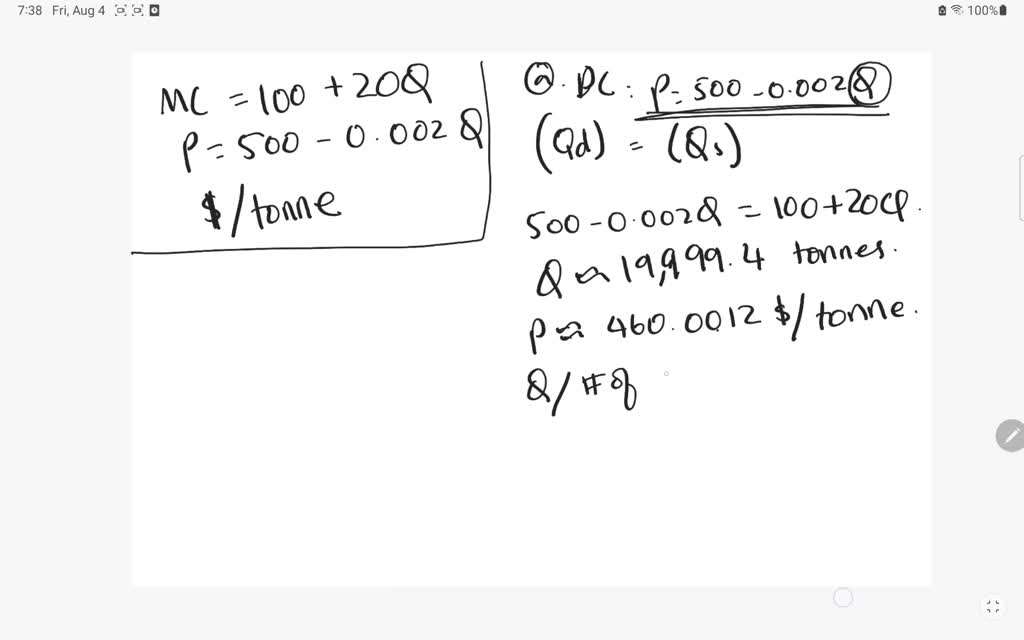 7:38 Fri, Aug 4
100%
MC = 100 + 20Q
P = 500 - 0.002 Q
$/tonne
ⓐ. DC : P = 500 - 0.002Q
(Qd) = (Qs)
500 - 0.002Q = 100 + 20Q.
Q ≈ 19,999.4 tonnes.
P ≈ 460.0012 $/tonne.
Q/# of